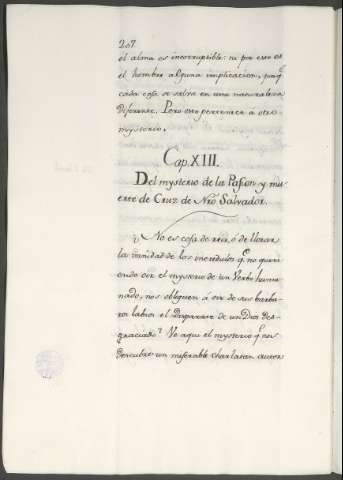 207
el alma es incorruptible: ni por esso es
el hombre alguna implicacion, pues
cada cosa se salva en una naturaleza
diferente. Pero esto pertenece á otro
mysterio.
Cap. XIII.
Del mysterio de la Passion y mu
erte de Cruz de Nrō Salvador.
¿No es cosa de reir, ó de llorar
la vanidad de los incredulos q.e no queri
endo oir el mysterio de un Verbo huma
nado, nos obliguen á oir de sus barba
ros labios el disparate de un Dios des-
graciado? Ve aqui el mysterio q.e nos
descubre un miserable charlatan autor